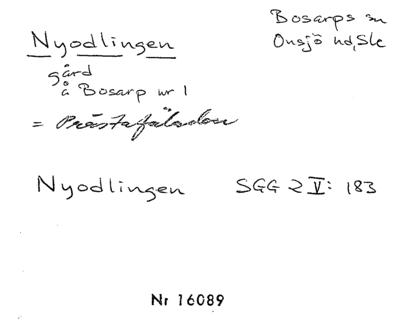 Bosarps sn
Onsjö hd, Sk
Nyodlingen
gård
å Bosarp nr 1
= Prästafäladen
Nyodlingen SGG 2 V: 183
Nr 16089